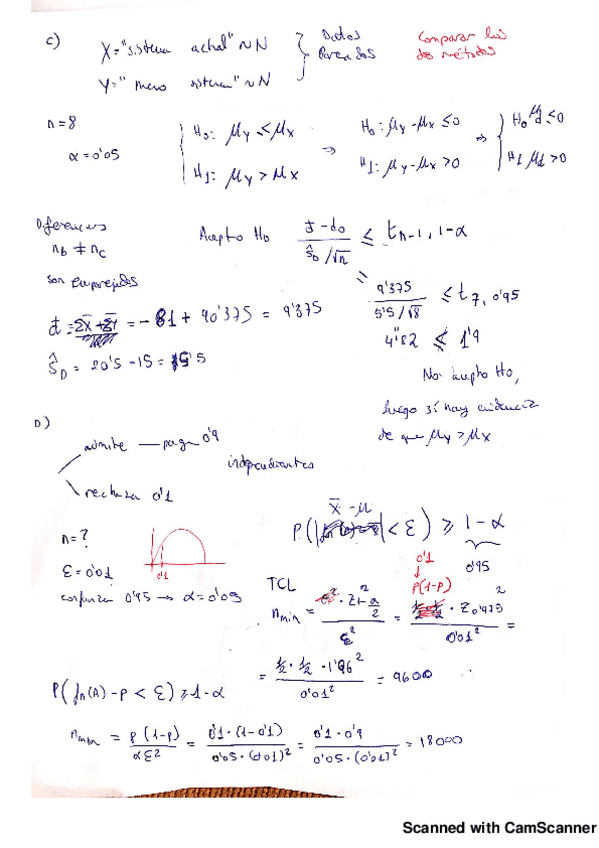 c) X="sistema actual" ~ N } Datos Pareados Comparar los dos métodos
Y="nuevo sistema" ~ N
n=8
α=0'05
H₀: μy ≤ μx ⇒ H₀: μy-μx ≤0 ⇒ H₀ μd ≤0
H1: μy > μx H1: μy-μx >0 H1 μd >0
Diferencias
nb ≠ nc
son emparejados
Acepto H₀ (d̄-d₀)/(ŝD/√n) ≤ t n-1, 1-α
9'375/(5'5/√8) ≤ t 7, 0'95
= -81 + 90'375 = 9'375
4'82 ≤ 1'9
ŜD = 20'5 -15 = 5'5
No acepto H₀,
luego sí hay evidencia
de que μy > μx
D)
admite — paga 0'9
independientes
rechaza 0'1
n=?
ε=0'01
confianza 0'95 → α=0'05
0'1
P(| x̄-μ |<ε) ≥ 1-α
0'95
TCL
0'1
p(1-p)
n min = · Z 1+α/2 ² / ε² = · Z 0'975 ² / 0'01² =
= ½ · ½ · 1'96² / 0'01² = 9600
P(fn(A)-p < ε) ≥ 1-α
n min = p(1-p)/αε² = 0'1·(1-0'1)/0'05·(0'01)² = 0'1·0'9/0'05·(0'01)² = 18000
Scanned with CamScanner